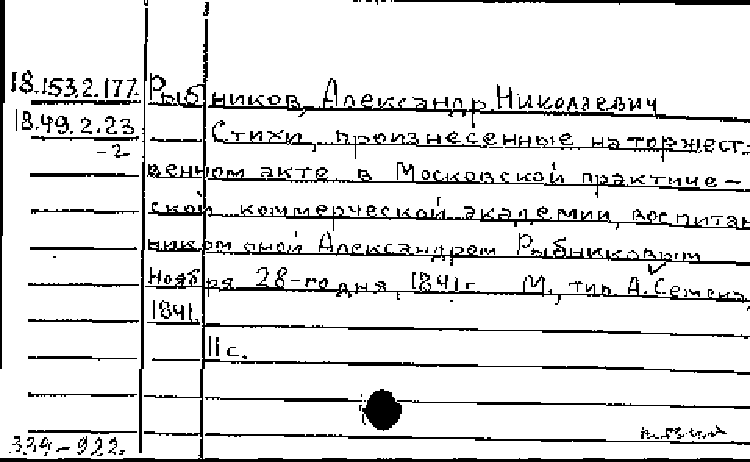 18.153.2.177. Рыбников, Александр Николаевич
18.49.2.23 Стихи, произнесенные на торжест-
-2
венном акте в Московской практиче-
ской коммерческой академии, воспитан
ником оной Александром Рыбниковым
Ноября 28-го дня, 1841 г. М., тип. А. Семена,
1841.
11 с.
334-922.